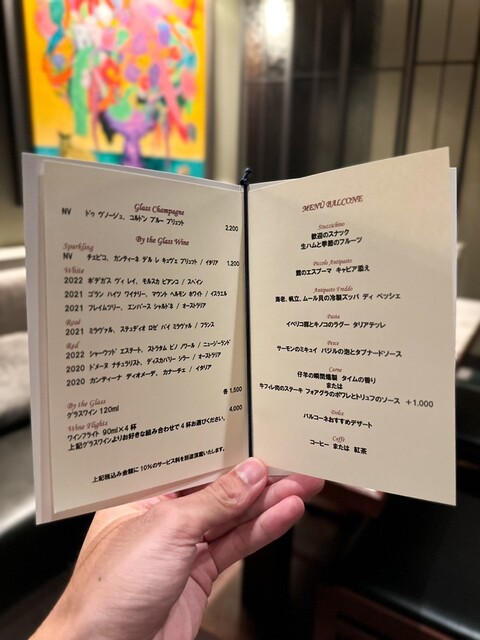 Glass Champagne
NV ドゥ ヴノージュ、コルドン ブルー ブリュット
2,200
By the Glass Wine
Sparkling
NV チェビコ、カンティーネ デル レ キュヴェ ブリュット / イタリア 1,200
White
2022 ボデガス ヴィ レイ、モルスカ ビアンコ / スペイン
2021 ゴラン ハイツ ワイナリー、マウント ヘルモン ホワイト / イスラエル
2021 フレイムツリー、エンバース シャルドネ / オーストラリア
Rosé
2021 ミラヴァル、スチュディオ ロゼ バイ ミラヴァル / フランス
Red
2022 シャーウッド エステート、ストラタム ピノ ノワール / ニュージーランド
2020 ドメーヌ ナチュラリスト、ディスカバリー シラー / オーストラリア
2020 カンティーナ ディオメーデ、カナーチェ / イタリア
各 1,500
By the Glass
グラスワイン 120ml
4,000
Wine Flights
ワインフライト 90ml×4 杯
上記グラスワインよりお好きな組み合わせで 4 杯お選びください。
上記税込み金額に 10%のサービス料を別途頂戴いたします。
MENÙ BALCONE
Stuzzichino
歓迎のスナック
生ハムと季節のフルーツ
Piccolo Antipasto
蟹のエスプーマ キャビア添え
Antipasto Freddo
海老、帆立、ムール貝の冷製ズッパ ディ ペッシェ
Pasta
イベリコ豚とキノコのラグー タリアテッレ
Pesce
サーモンのミキュイ バジルの泡とタプナードソース
Carne
仔羊の瞬間燻製 タイムの香り
または
牛フィレ肉のステーキ フォアグラのポワレとトリュフのソース +1,000
Dolce
バルコーネおすすめデザート
Caffè
コーヒー または 紅茶